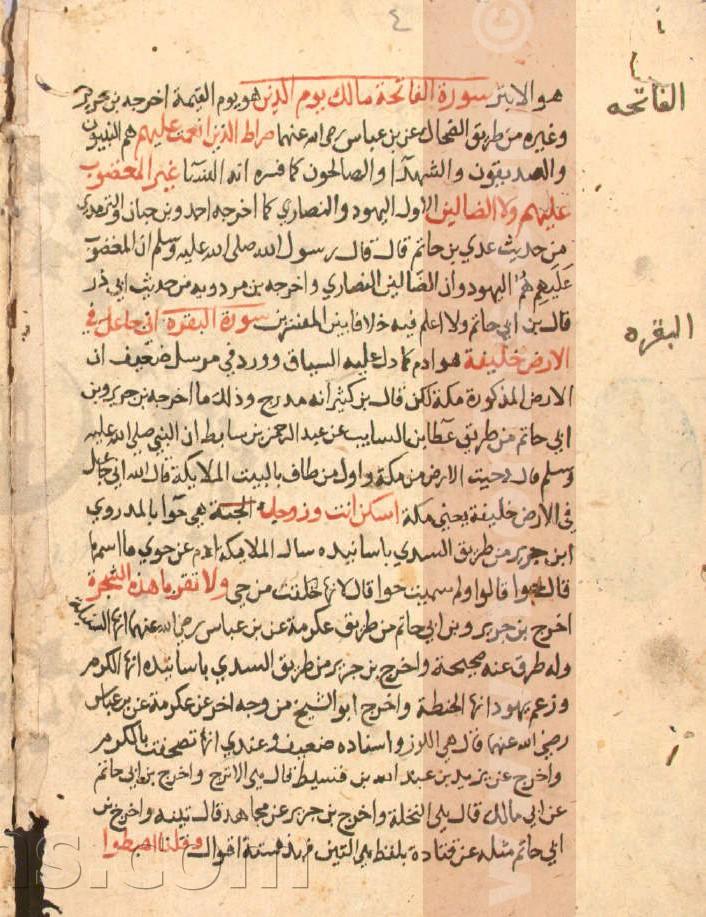 ٤
هو الابتر سورة الفاتحة مالك يوم الدين هو يوم القيمة اخرجه بن جرير
وغيره من طريق الضحاك عن بن عباس رضي الله عنهما صراط الذين انعمت عليهم هم النبيون
والصديقون والشهدا والصالحون كما فسره اية النسآ غير المغضوب
عليهم ولا الضالين الاول اليهود والنصاري كما اخرجه احمد وبن حبان والترمذي
من حديث عدي بن حاتم قال قال رسول الله صلى الله عليه وسلم ان المغضوب
عليهم هم اليهود وان الضالين النصاري واخرجه بن مردويه من حديث ابي ذر
قال بن ابي حاتم ولا اعلم فيه خلافا بين المفسرين سورة البقرة اني جاعل في
الارض خليفة هو ادم كما دل عليه السياق وورد في مرسل ضعيف ان
الارض المذكورة مكة لكن قال بن كثير انه مدرج وذلك ما اخرجه بن جرير وبن
ابي حاتم من طريق عطا بن السايب عن عبد الرحمن بن سابط ان النبي صلى الله عليه
وسلم قال دحيت الارض من مكة واول من طاف بالبيت الملايكة قال الله اني جاعل
في الارض خليفة يعني مكة اسكن انت وزوجك الجنة هي حوا بالمد روي
ابن جرير من طريق السدي باسانيده سالت الملايكة ادم عن حوي ما اسمها
قال حوا قالوا ولم سميت حوا قال لانها خلقت من حي ولا تقربا هذه الشجرة
اخرج بن جرير وبن ابي حاتم من طريق عكرمة عن بن عباس رضي الله عنهما انها السنبلة
وله طرق عنه صحيحة واخرج بن جرير من طريق السدي باسانيده انها الكرم
وزعم يهود انها الحنطة واخرج ابو الشيخ من وجه اخر عن عكرمة عن بن عباس
رضي الله عنهما قال هي اللوز واسناده ضعيف وعندي انها تصحفت بالكرم
واخرج عن يزيد بن عبد الله بن قسيط قال هي الاترج واخرج بن ابي حاتم
عن ابي مالك قال هي النخلة واخرج بن جرير عن مجاهد قال تينة واخرج بن
ابي حاتم مثله عن قتادة بلفظ هي التين فهذه ستة اقوال وقلنا اهبطوا
الفاتحه
البقره